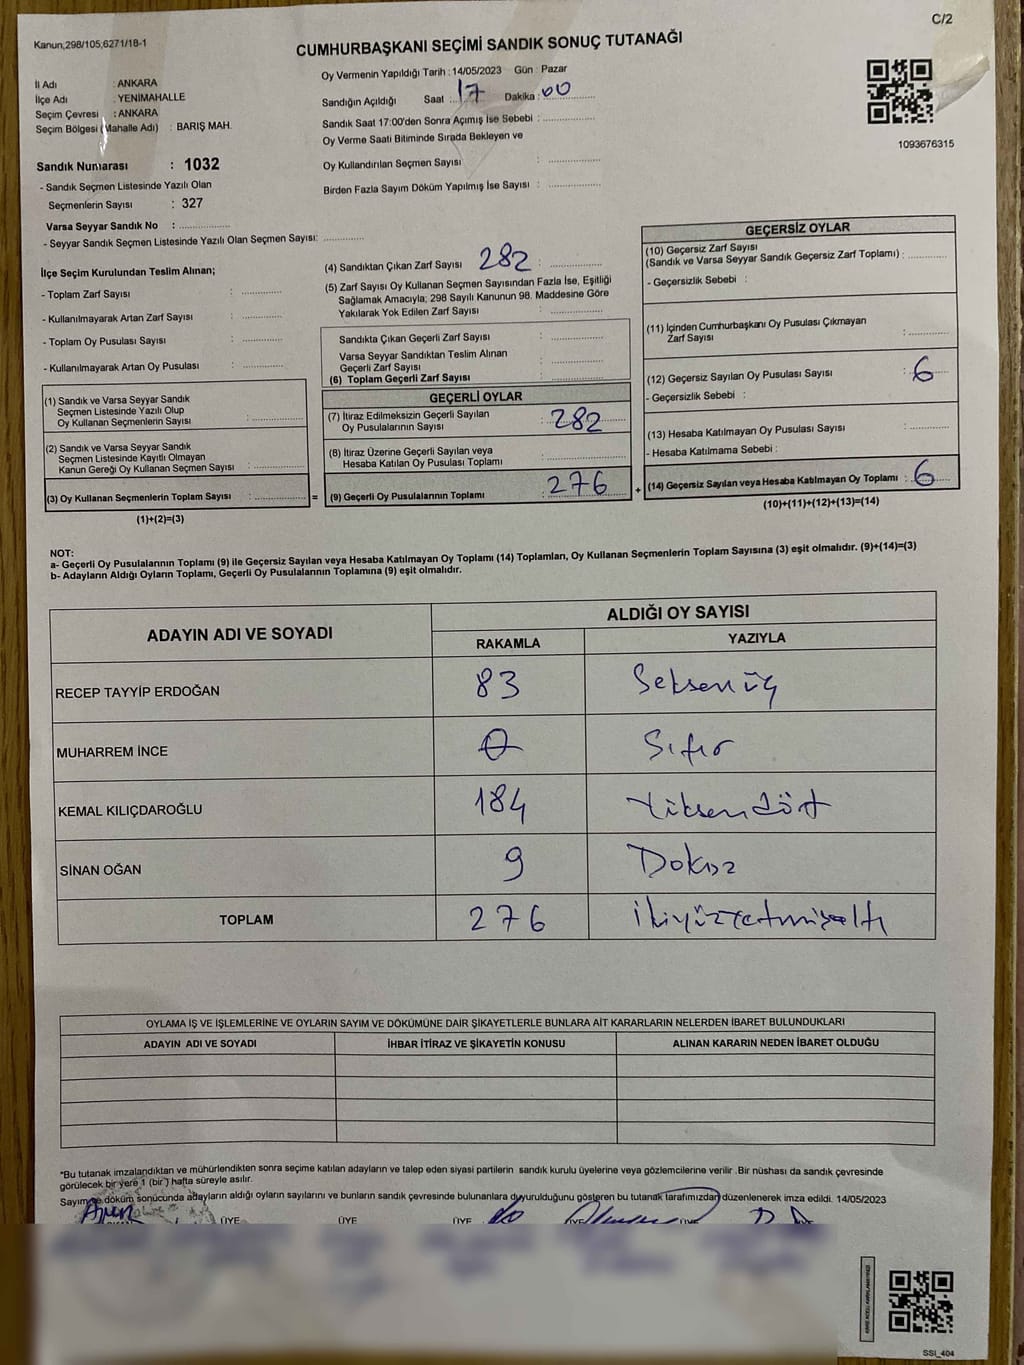 C/2
Kanun;298/105,6271/18-1
CUMHURBAŞKANI SEÇİMİ SANDIK SONUÇ TUTANAĞI
İl Adı : ANKARA
İlçe Adı : YENİMAHALLE
Seçim Çevresi : ANKARA
Seçim Bölgesi (Mahalle Adı) : BARIŞ MAH.
Sandık Numarası : 1032
- Sandık Seçmen Listesinde Yazılı Olan
Seçmenlerin Sayısı : 327
Varsa Seyyar Sandık No : ................
- Seyyar Sandık Seçmen Listesinde Yazılı Olan Seçmen Sayısı: .............
Oy Vermenin Yapıldığı Tarih : 14/05/2023 Gün : Pazar
Sandığın Açıldığı Saat : 17 Dakika : 00
Sandık Saat 17:00'den Sonra Açımış İse Sebebi : ................
Oy Verme Saati Bitiminde Sırada Bekleyen ve
Oy Kullandırılan Seçmen Sayısı : ................
Birden Fazla Sayım Döküm Yapılmış İse Sayısı : ................
1093676315
İlçe Seçim Kurulundan Teslim Alınan;
- Toplam Zarf Sayısı : .............
- Kullanılmayarak Artan Zarf Sayısı : .............
- Toplam Oy Pusulası Sayısı : .............
- Kullanılmayarak Artan Oy Pusulası : .............
(1) Sandık ve Varsa Seyyar Sandık
Seçmen Listesinde Yazılı Olup
Oy Kullanan Seçmenlerin Sayısı : ................
(2) Sandık ve Varsa Seyyar Sandık
Seçmen Listesinde Kayıtlı Olmayan
Kanun Gereği Oy Kullanan Seçmen Sayısı : ................
(3) Oy Kullanan Seçmenlerin Toplam Sayısı : ................ =
(1)+(2)=(3)
(4) Sandıktan Çıkan Zarf Sayısı 282 : ................
(5) Zarf Sayısı Oy Kullanan Seçmen Sayısından Fazla İse, Eşitliği
Sağlamak Amacıyla; 298 Sayılı Kanunun 98. Maddesine Göre
Yakılarak Yok Edilen Zarf Sayısı : ................
Sandıkta Çıkan Geçerli Zarf Sayısı : ................
Varsa Seyyar Sandıktan Teslim Alınan
Geçerli Zarf Sayısı : ................
(6) Toplam Geçerli Zarf Sayısı : ................
GEÇERLİ OYLAR
(7) İtiraz Edilmeksizin Geçerli Sayılan
Oy Pusulalarının Sayısı : 282
(8) İtiraz Üzerine Geçerli Sayılan veya
Hesaba Katılan Oy Pusulası Toplamı : ................
(9) Geçerli Oy Pusulalarının Toplamı : 276 +
GEÇERSİZ OYLAR
(10) Geçersiz Zarf Sayısı
(Sandık ve Varsa Seyyar Sandık Geçersiz Zarf Toplamı) : .............
- Geçersizlik Sebebi :
(11) İçinden Cumhurbaşkanı Oy Pusulası Çıkmayan
Zarf Sayısı : .............
(12) Geçersiz Sayılan Oy Pusulası Sayısı : 6
- Geçersizlik Sebebi :
(13) Hesaba Katılmayan Oy Pusulası Sayısı : .............
- Hesaba Katılmama Sebebi :
(14) Geçersiz Sayılan veya Hesaba Katılmayan Oy Toplamı : 6
(10)+(11)+(12)+(13)=(14)
NOT:
a- Geçerli Oy Pusulalarının Toplamı (9) ile Geçersiz Sayılan veya Hesaba Katılmayan Oy Toplamı (14) Toplamları, Oy Kullanan Seçmenlerin Toplam Sayısına (3) eşit olmalıdır. (9)+(14)=(3)
b- Adayların Aldığı Oyların Toplamı, Geçerli Oy Pusulalarının Toplamına (9) eşit olmalıdır.
ADAYIN ADI VE SOYADI ALDIĞI OY SAYISI
RAKAMLA YAZIYLA
RECEP TAYYİP ERDOĞAN 83 Seksen üç
MUHARREM İNCE 0 Sıfır
KEMAL KILIÇDAROĞLU 184
SİNAN OĞAN 9 Dokuz
TOPLAM 276 İkiyüzyetmişaltı
OYLAMA İŞ VE İŞLEMLERİNE VE OYLARIN SAYIM VE DÖKÜMÜNE DAİR ŞİKAYETLERLE BUNLARA AİT KARARLARIN NELERDEN İBARET BULUNDUKLARI
ADAYIN ADI VE SOYADI İHBAR İTİRAZ VE ŞİKAYETİN KONUSU ALINAN KARARIN NEDEN İBARET OLDUĞU
*Bu tutanak imzalandıktan ve mühürlendikten sonra seçime katılan adayların ve talep eden siyasi partilerin sandık kurulu üyelerine veya gözlemcilerine verilir .Bir nüshası da sandık çevresinde
görülecek bir yere 1 (bir ) hafta süreyle asılır.
Sayım ve döküm sonucunda adayların aldığı oyların sayılarını ve bunların sandık çevresinde bulunanlara duyurulduğunu gösteren bu tutanak tarafımızdan düzenlenerek imza edildi. 14/05/2023
ÜYE ÜYE ÜYE
SSI_404